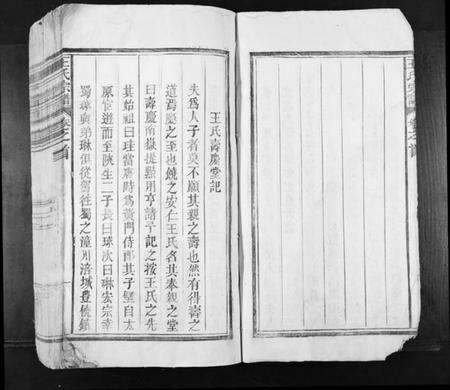 王氏壽慶堂記
夫為人子者莫不願其親之壽也然有得壽之
道焉慶之至也饒之安仁王氏名其奉親之堂
曰壽慶南嶽提點用亨請予記之按王氏之先
其始祖曰珪當唐時為黃門侍郎其子璧自太
原官遊而至陜生二子長曰球次曰琳安宗幸
蜀尋與弟琳俱從駕往蜀之潼川涪城豊饒鎮
王氏宗譜
卷之首
王氏宗譜
卷之首